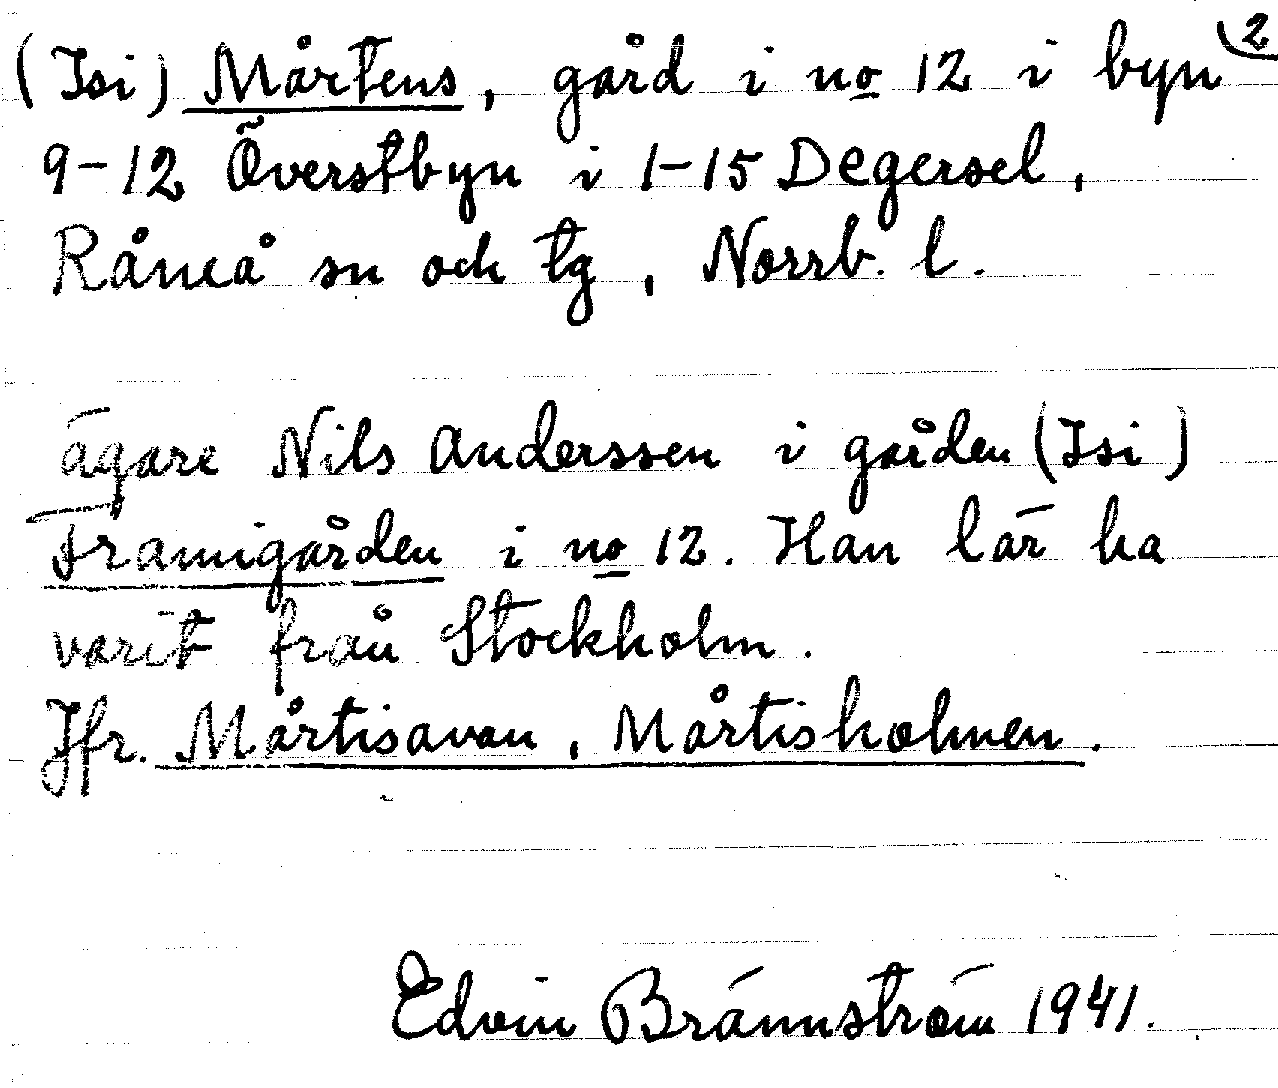 (Isi) Mårtens, gård i no 12 i byn 2
9-12 Överstbyn i 1-15 Degersel,
Råneå sn och tg, Norrb. l.
ägare Nils Anderssen i gården (Isi)
Framigården i no 12. Han lär ha
varit från Stockholm.
Jfr. Mårtisavan, Mårtisholmen.
Edvin Brännström 1941.